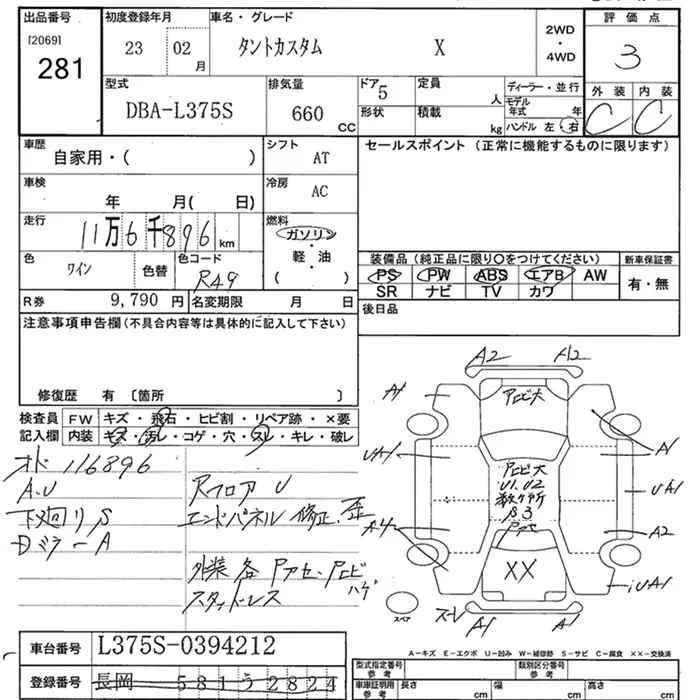 出品番号
[2069]
281
初度登録年月
23 02
月
車名・グレード
タントカスタム X
2WD
・
4WD
評価点
3
外装 内装
C C
型式
DBA-L375S
排気量
660
CC
ドア 5
形状
定員
人
積載
kg
ディーラー・並行
モデル
年式 年
ハンドル 左 右
車歴
自家用・( )
シフト
AT
車検
年 月( 日)
冷房
AC
走行
11万6千896 km
燃料
ガソリン
・
軽・油
( )
色
ワイン
色替
色コード
R49
R券 9,790 円
名変期限 月 日
セールスポイント (正常に機能するものに限ります)
装備品 (純正品に限り○をつけてください)
PS PW ABS エアB AW
SR ナビ TV カワ
新車保証書
有・無
後日品
注意事項申告欄(不具合内容等は具体的に記入して下さい)
修復歴 有 〔箇所 〕
検査員
記入欄
FW キズ・飛石・ヒビ割・リペア跡・×要
内装 キズ・汚レ・コゲ・穴・スレ・キレ・破レ
オド 116896
A.U
下廻り S
Dミラー A
Rフロア U
エンドパネル 修正、歪
外装 各 Pアセ、Pヒビ
ハゲ
スタッドレス
A2 A2
A1
Pヒビ大
UA1
A1
Pヒビ大
U1.U2
数ヶ所
B3
Pアセ
UA1
A2
XX
UA1
スペア
A1 A1
A-キズ E-エクボ U-凹み W-補修跡 S-サビ C-腐食 XX-交換済
車台番号 L375S-0394212
登録番号 長岡 581う2824
型式指定番号
参考
類別区分番号
参考
車庫証明用
参考
長さ cm
幅 cm
高さ cm